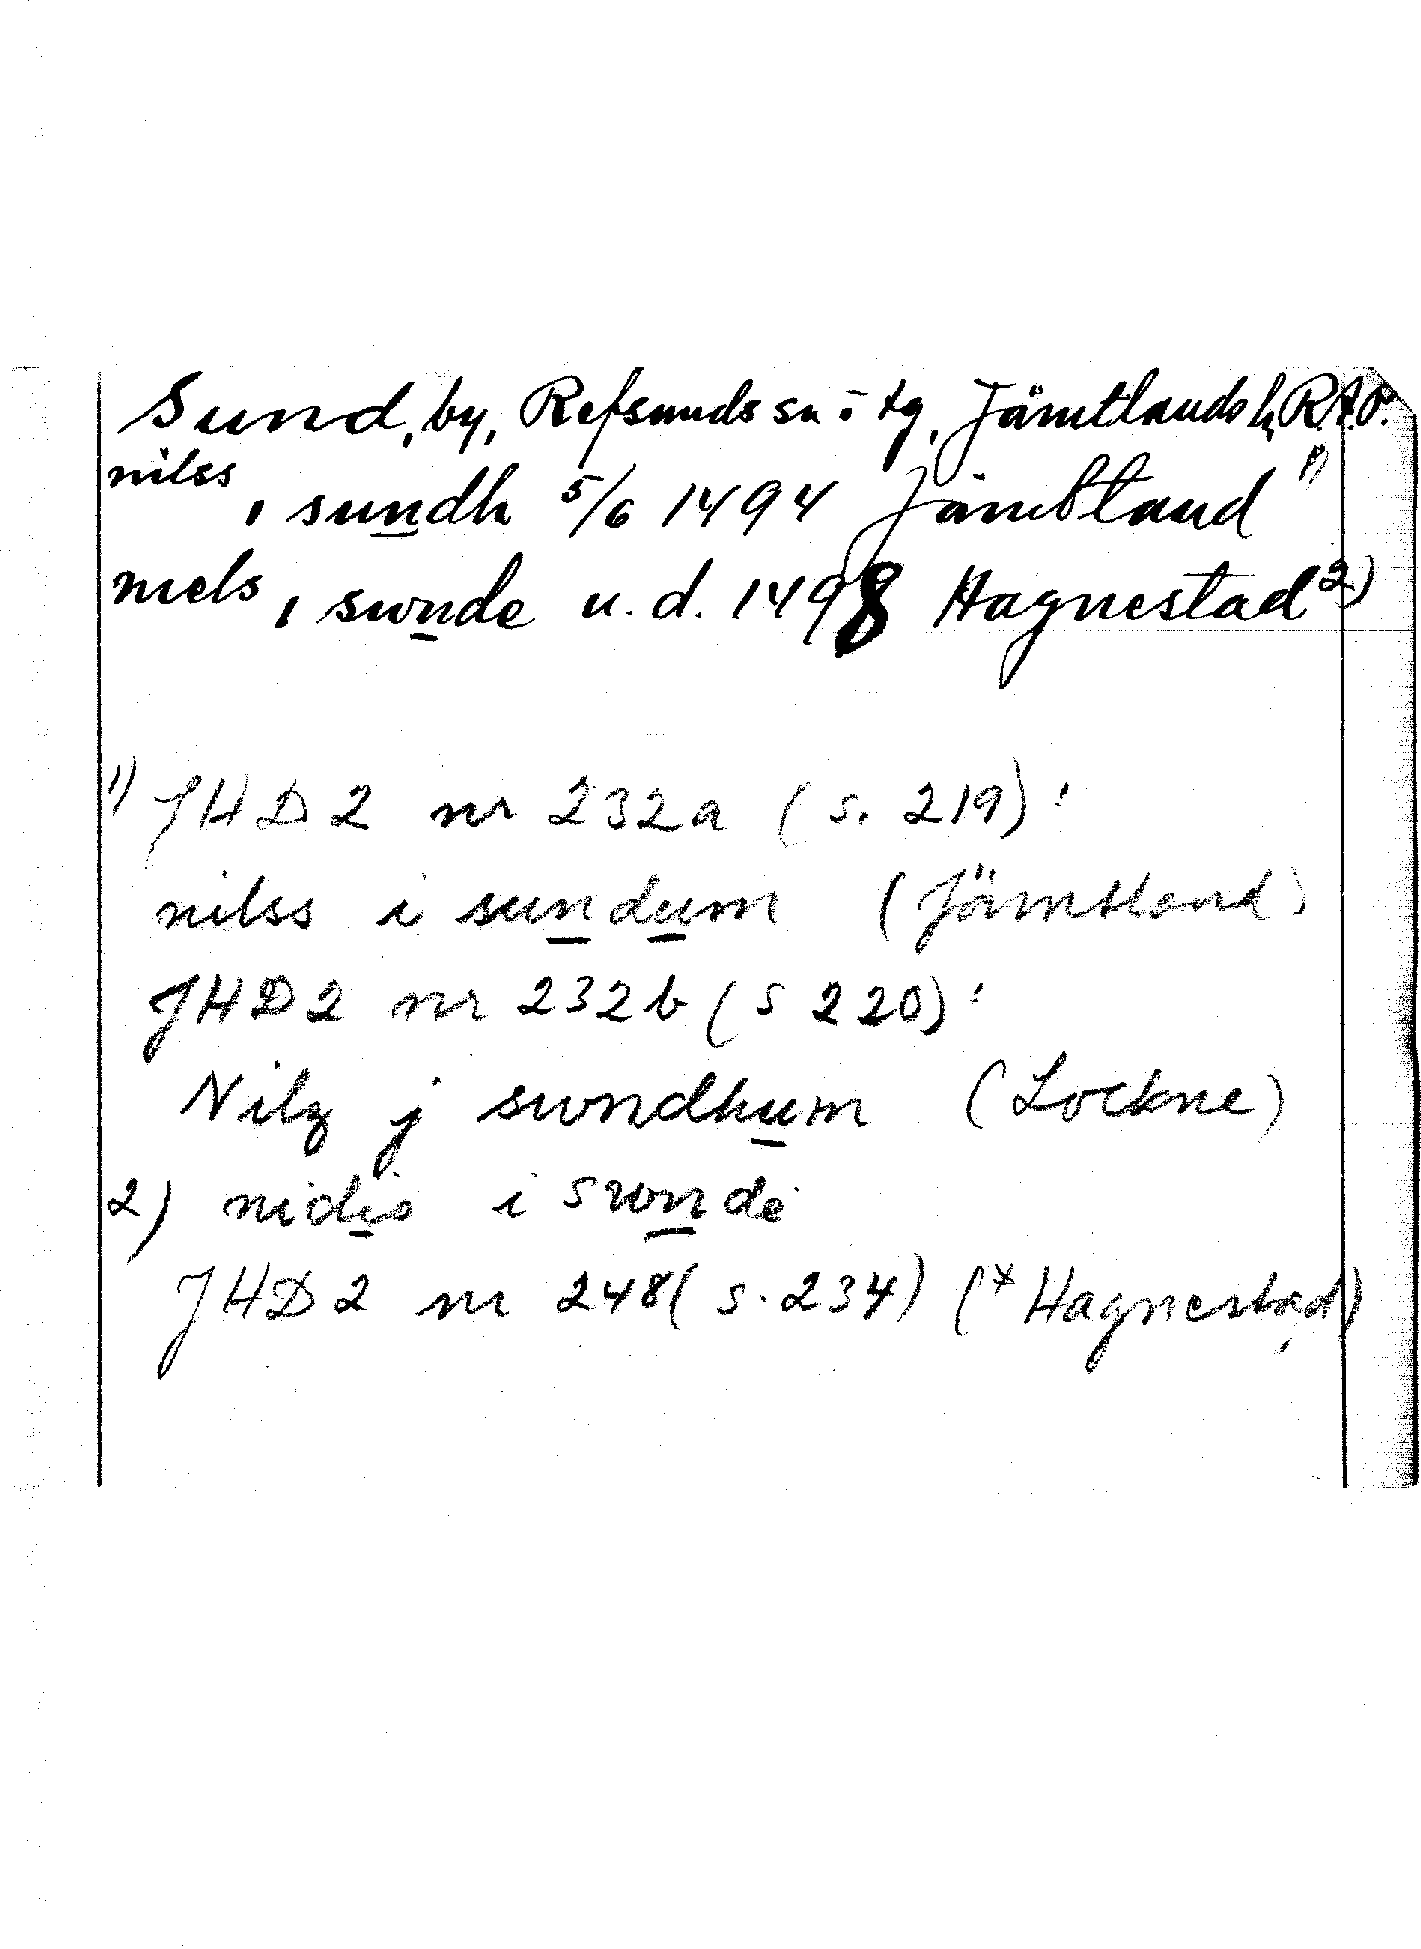 Sund, by, Refsunds sn o tg, Jämtlands l, R.A.P.
nilss i sundh 5/6 1494 Jämbtland 1)
niels i swnde u.d. 1498 Hagnestad 2)
1) JHD 2 nr 232a (s. 219):
nilss i sundum (Jämtland)
JHD 2 nr 232b (s 220):
Nilz j swndhum (Lockne)
2) i swnde
JHD 2 nr 248 (s. 234) (* Hagnestad)